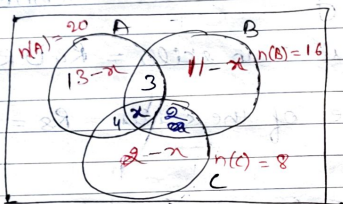 n(A) = 20
A
B
n(B) = 16
13-x
3
11-x
x
4
2
2-x
n(C) = 8
C